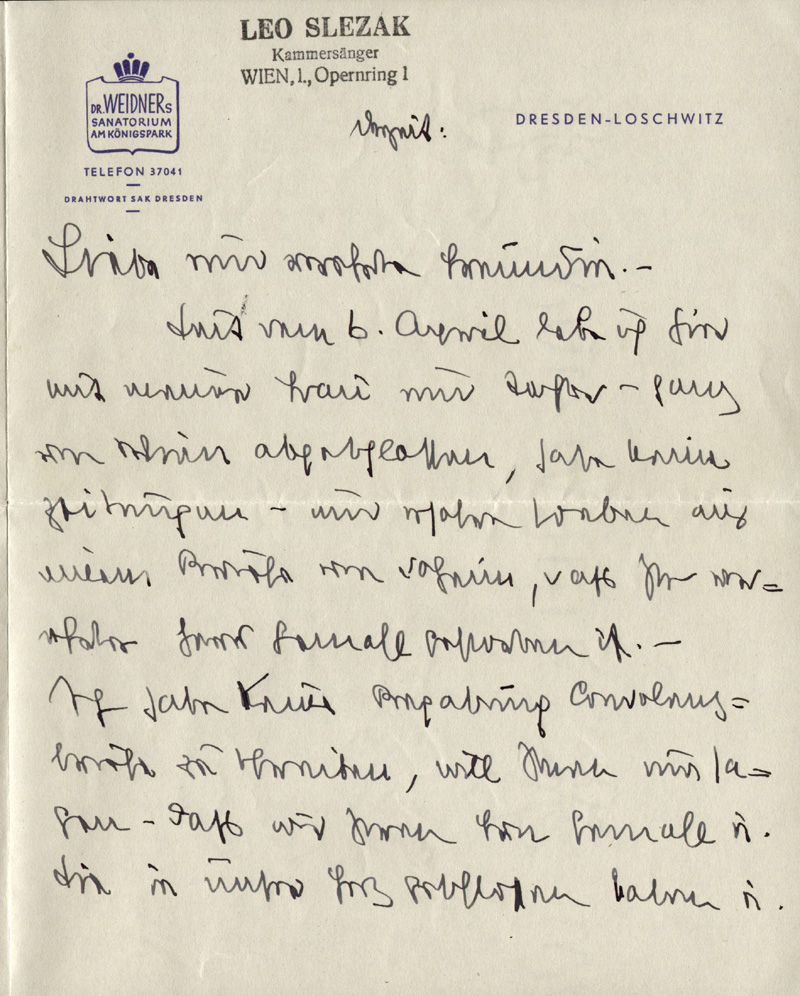 LEO SLEZAK
Kammersänger
WIEN, I., Opernring 1
DR. WEIDNERS
SANATORIUM
AM KÖNIGSPARK
TELEFON 37041
DRAHTWORT SAK DRESDEN
DRESDEN-LOSCHWITZ
derzeit:
Liebe und verehrte Freundin. –
Seit dem 6. April lebe ich hier
mit meiner Frau und Tochter – ganz
von abgeschlossen, habe keine
Zeitungen – und erfahre soeben aus
einem Briefe von daheim, daß Ihr ver=
ehrter Herr Gemahl gestorben ist. –
Ich habe keine Begabung Condolenz=
briefe zu schreiben, will Ihnen nur sa=
gen – daß wir Ihren Gemahl u.
Sie in unser Herz geschlossen haben u.